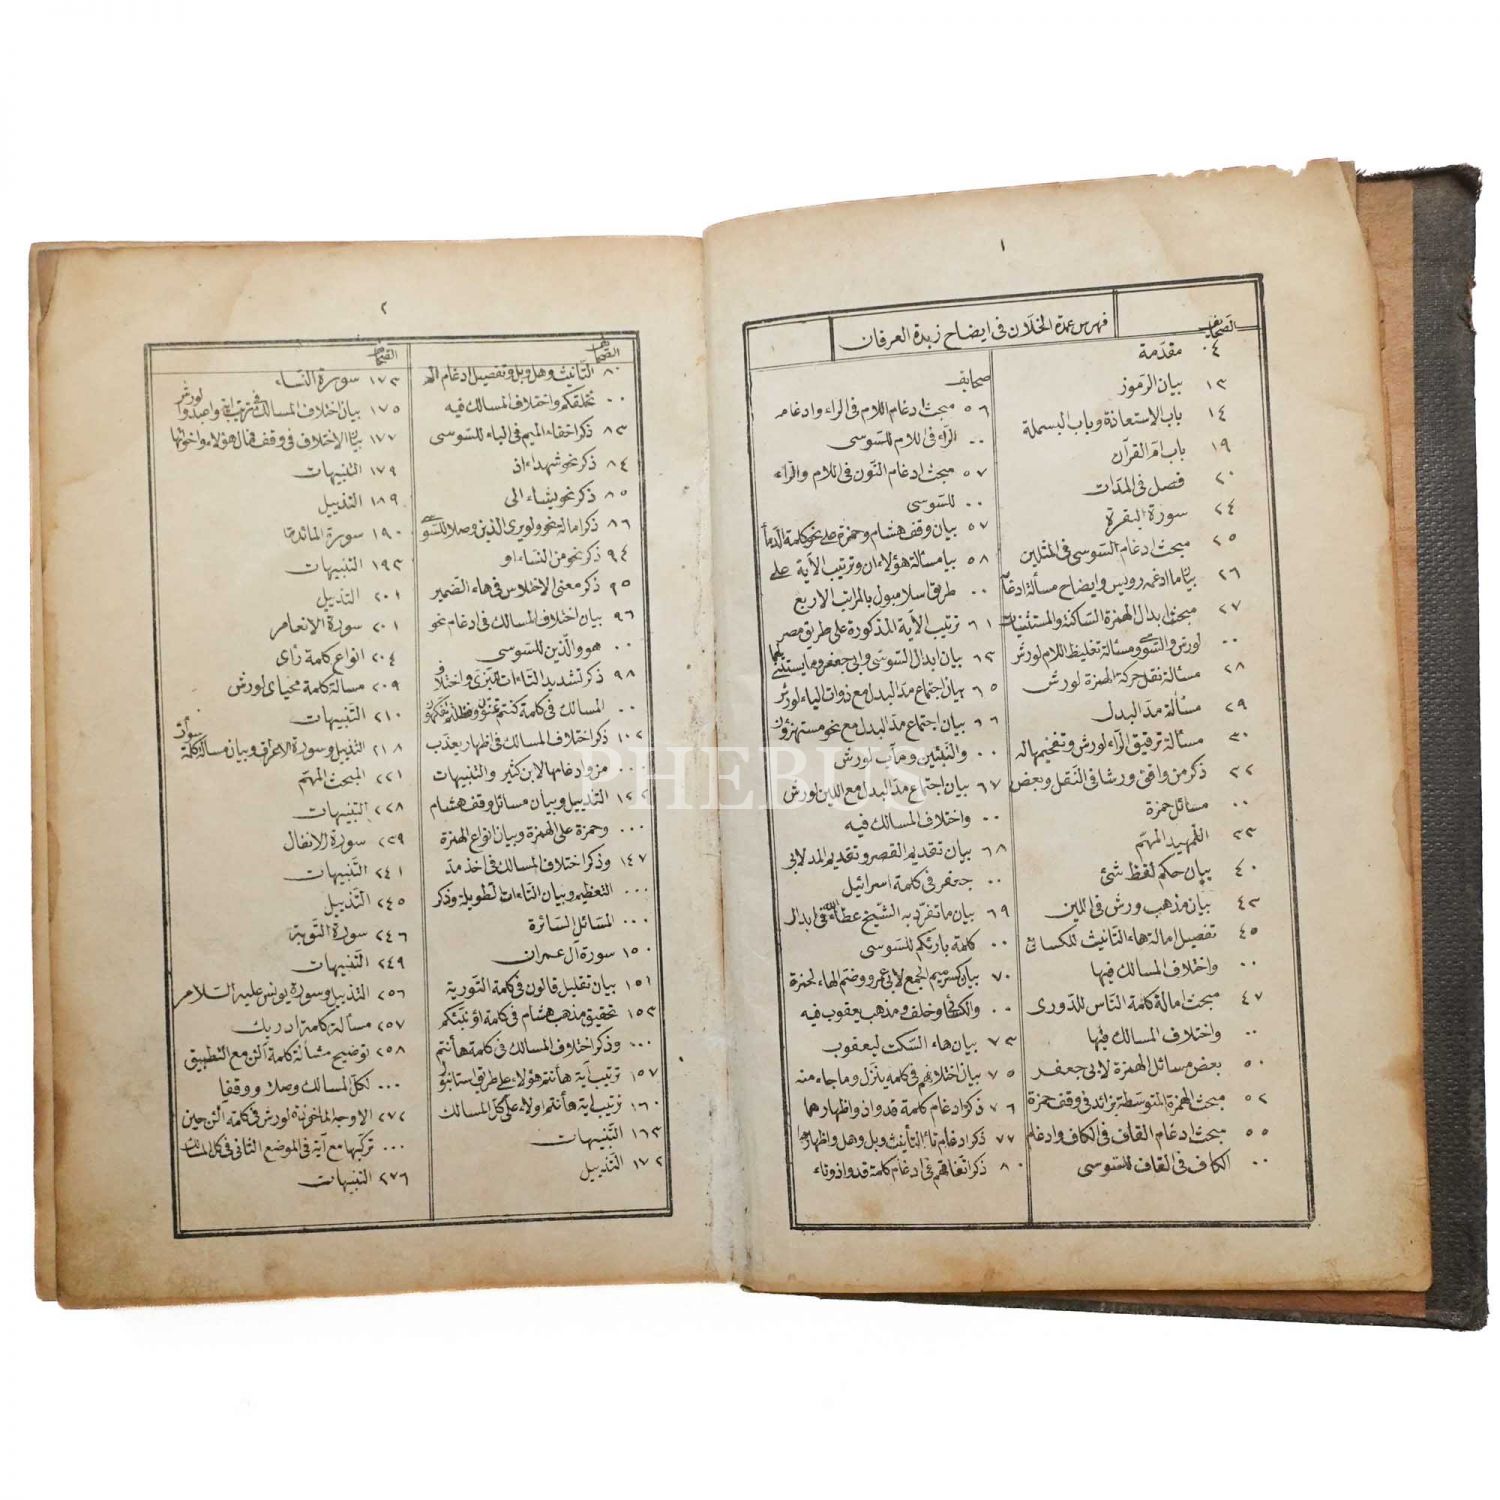 ١
فهرس عمدة الخلان فى ايضاح زبدة العرفان
الصحايف
٠٤ مقدمة
١٣ بيان الرموز
١٤ باب الاستعاذة وباب البسملة
١٩ باب ام القرآن
٢٠ فصل فى المدات
٢٤ سورة البقرة
٢٥ مبحث ادغام السوسى فى المثلين
٢٦ بيان ما ادغمه رويس وايضاح مسألة ادغام
٢٧ مبحث ابدال الهمزة الساكنة والمستثنيات
٠٠ لورش والسوسى ومسألة تغليظ اللام لورش
٢٨ مسألة نقل حركة الهمزة لورش
٢٩ مسألة مد البدل
٣٠ مسألة ترقيق الراء لورش وتفخيمها له
٣٢ ذكر من وافق ورشا فى النقل وبعض
٠٠ مسائل حمزة
٣٣ التمهيد المهم
٤٠ بيان حكم لفظ شئ
٤٣ بيان مذهب ورش فى اللين
٤٥ تفصيل امالة هاء التانيث للكسائى
٠٠ واختلاف المسالك فيها
٤٧ مبحث امالة كلمة الناس للدورى
٠٠ واختلاف المسالك فيها
٥٠ بعض مسائل الهمزة لابى جعفر
٥٢ مبحث الهمزة المتوسطة بزائد فى وقف حمزة
٥٥ مبحث ادغام القاف فى الكاف وادغام
٠٠ الكاف فى القاف للسوسى
صحايف
٥٦ مبحث ادغام اللام فى الراء وادغامه
٠٠ الراء فى اللام للسوسى
٥٧ مبحث ادغام النون فى اللام والراء
٠٠ للسوسى
٥٧ بيان وقف هشام وحمزة على نحو كلمة الدماء
٥٨ بيا مسألة هؤلاء ان وترتيب الآية على
٠٠ طريق اسلامبول بالمراتب الاربع
٦١ ترتيب الآية المذكورة على طريق مصر
٦٣ بيان ابدال السوسى وابى جعفر وما يستثنى لهما
٦٥ بيان اجتماع مد البدل مع ذوات الياء لورش
٦٦ بيان اجتماع مد البدل مع نحو مستهزؤن
٠٠ والنبئين ومآب لورش
٦٧ بيان اجتماع مد البدل مع اللين لورش
٠٠ واختلاف المسالك فيه
٦٨ بيان تقديم القصر وتقديم المد لابى
٠٠ جعفر فى كلمة اسرائيل
٦٩ بيان ما تفرد به الشيخ عطاء الله فى ابدال
٠٠ كلمة بارئكم للسوسى
٧٠ بيان كسر ميم الجمع لابى عمرو وضم الهاء لحمزة
٠٠ والكسائى وخلف ومذهب يعقوب فيه
٧٣ بيان هاء السكت ليعقوب
٧٥ بيان اختلافهم فى كلمة ينزل وما جاء منه
٧٦ ذكر ادغام كلمة قد واذ واظهارهما
٧٧ ذكر ادغام تاء التأنيث وبل وهل واظهارها
٨٠ ذكر اتفاقهم فى ادغام كلمة قد واذ وتاء
٢
الصحايف
٨٠ التانيث وهل وبل وتفصيل ادغام الم
٠٠ نخلقكم واختلاف المسالك فيه
٨٣ ذكر اخفاء الميم فى الباء للسوسى
٨٤ ذكر نحو شهداء اذ
٨٥ ذكر نحو يشاء الى
٨٦ ذكر امالة نحو ولو يرى الذين وصلا للسوسى
٩٤ ذكر نحو من النساء او
٩٥ ذكر معنى الاختلاس فى هاء الضمير
٩٦ بيان اختلاف المسالك فى ادغام نحو
٠٠ هو والذين للسوسى
٩٨ ذكر تشديد التاءات للبزى واختلاف
٠٠ المسالك فى كلمة كنتم تمنون وفظلتم تفكهون
١٠٢ ذكر اختلاف المسالك فى اظهار يعذب
٠٠٠ من وادغامها لابن كثير والتنبيهات
١٢٢ التذييل وبيان مسائل وقف هشام
٠٠٠ وحمزة على الهمزة وبيان انواع الهمزة
١٤٧ وذكر اختلاف المسالك فى اخذ مد
٠٠٠ التعظيم وبيان التاءات الطويلة وذكر
٠٠٠ المسائل السائرة
١٥٠ سورة آل عمران
١٥١ بيان تقليل قالون فى كلمة التورية
١٥٣ تحقيق مذهب هشام فى كلمة اؤنبئكم
٠٠٠ وذكر اختلاف المسالك فى كلمة هاأنتم
١٥٧ ترتيب اية هاأنتم هؤلاء على طريق استانبول
١٦٠ ترتيب اية هاأنتم اولاء على كل المسالك
١٦٣ التنبيهات
١٧٢ التذييل
الصحايف
١٧٣ سورة النساء
١٧٥ بيان اختلاف المسالك فى ترتيب اية واعبدوا لورش
١٧٧ بيان الاختلاف فى وقف فمال هؤلاء واخواتها
١٧٩ التنبيهات
١٨٩ التذييل
١٩٠ سورة المائدة
١٩٣ التنبيهات
٢٠١ التذييل
٢٠١ سورة الانعام
٢٠٤ انواع كلمة رأى
٢٠٩ مسألة كلمة محياى لورش
٢١٠ التنبيهات
٢١٨ التذييل وسورة الاعراف وبيان مسألة كلمة سوآت
٢٢١ المبحث المهم
٢٢٨ التنبيهات
٢٣٩ سورة الانفال
٢٤١ التنبيهات
٢٤٥ التذييل
٢٤٦ سورة التوبة
٢٤٩ التنبيهات
٢٥٦ التذييل وسورة يونس عليه السلام
٢٥٧ مسألة كلمة ادريك
٢٥٨ توضيح مسألة كلمة آلئن مع التطبيق
٠٠٠ لكل المسالك وصلا ووقفا
٢٧٢ الاوجه المأخوذة لورش فى كلمة آلئن حين
٠٠٠ تركبها مع آية فى الموضع الثانى فى كل المسالك
٢٧٦ التنبيهات
PHEBUS